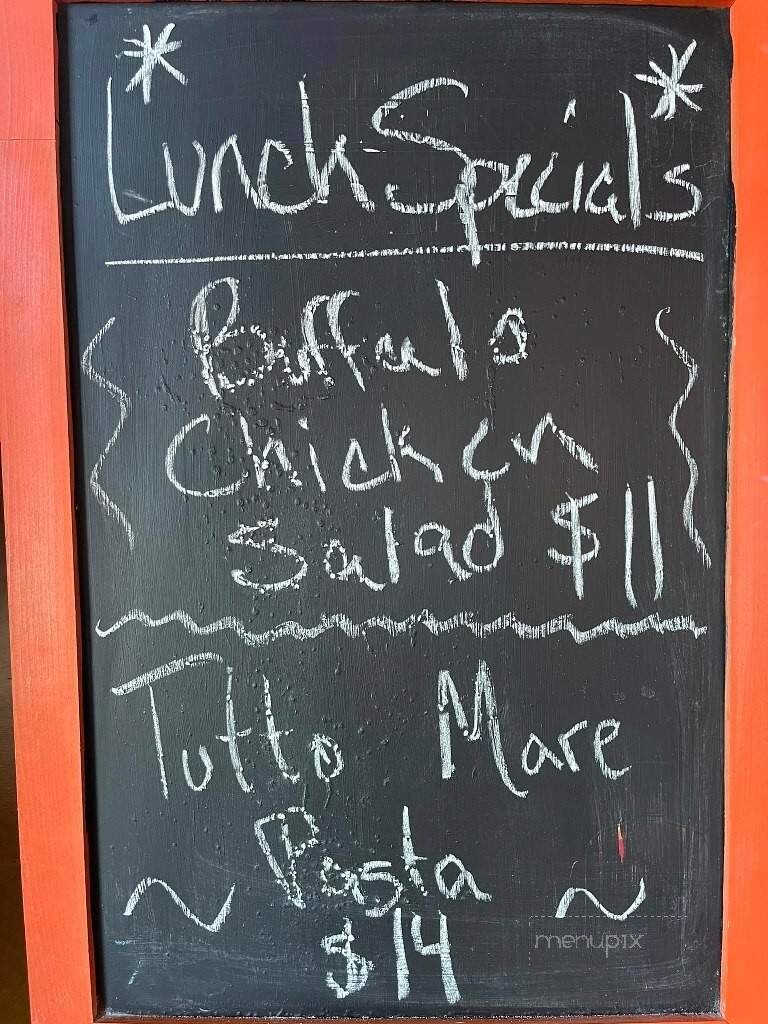 * Lunch Specials *
Buffalo
Chicken
Salad $11
Tutto Mare
Pasta
$14
menupix